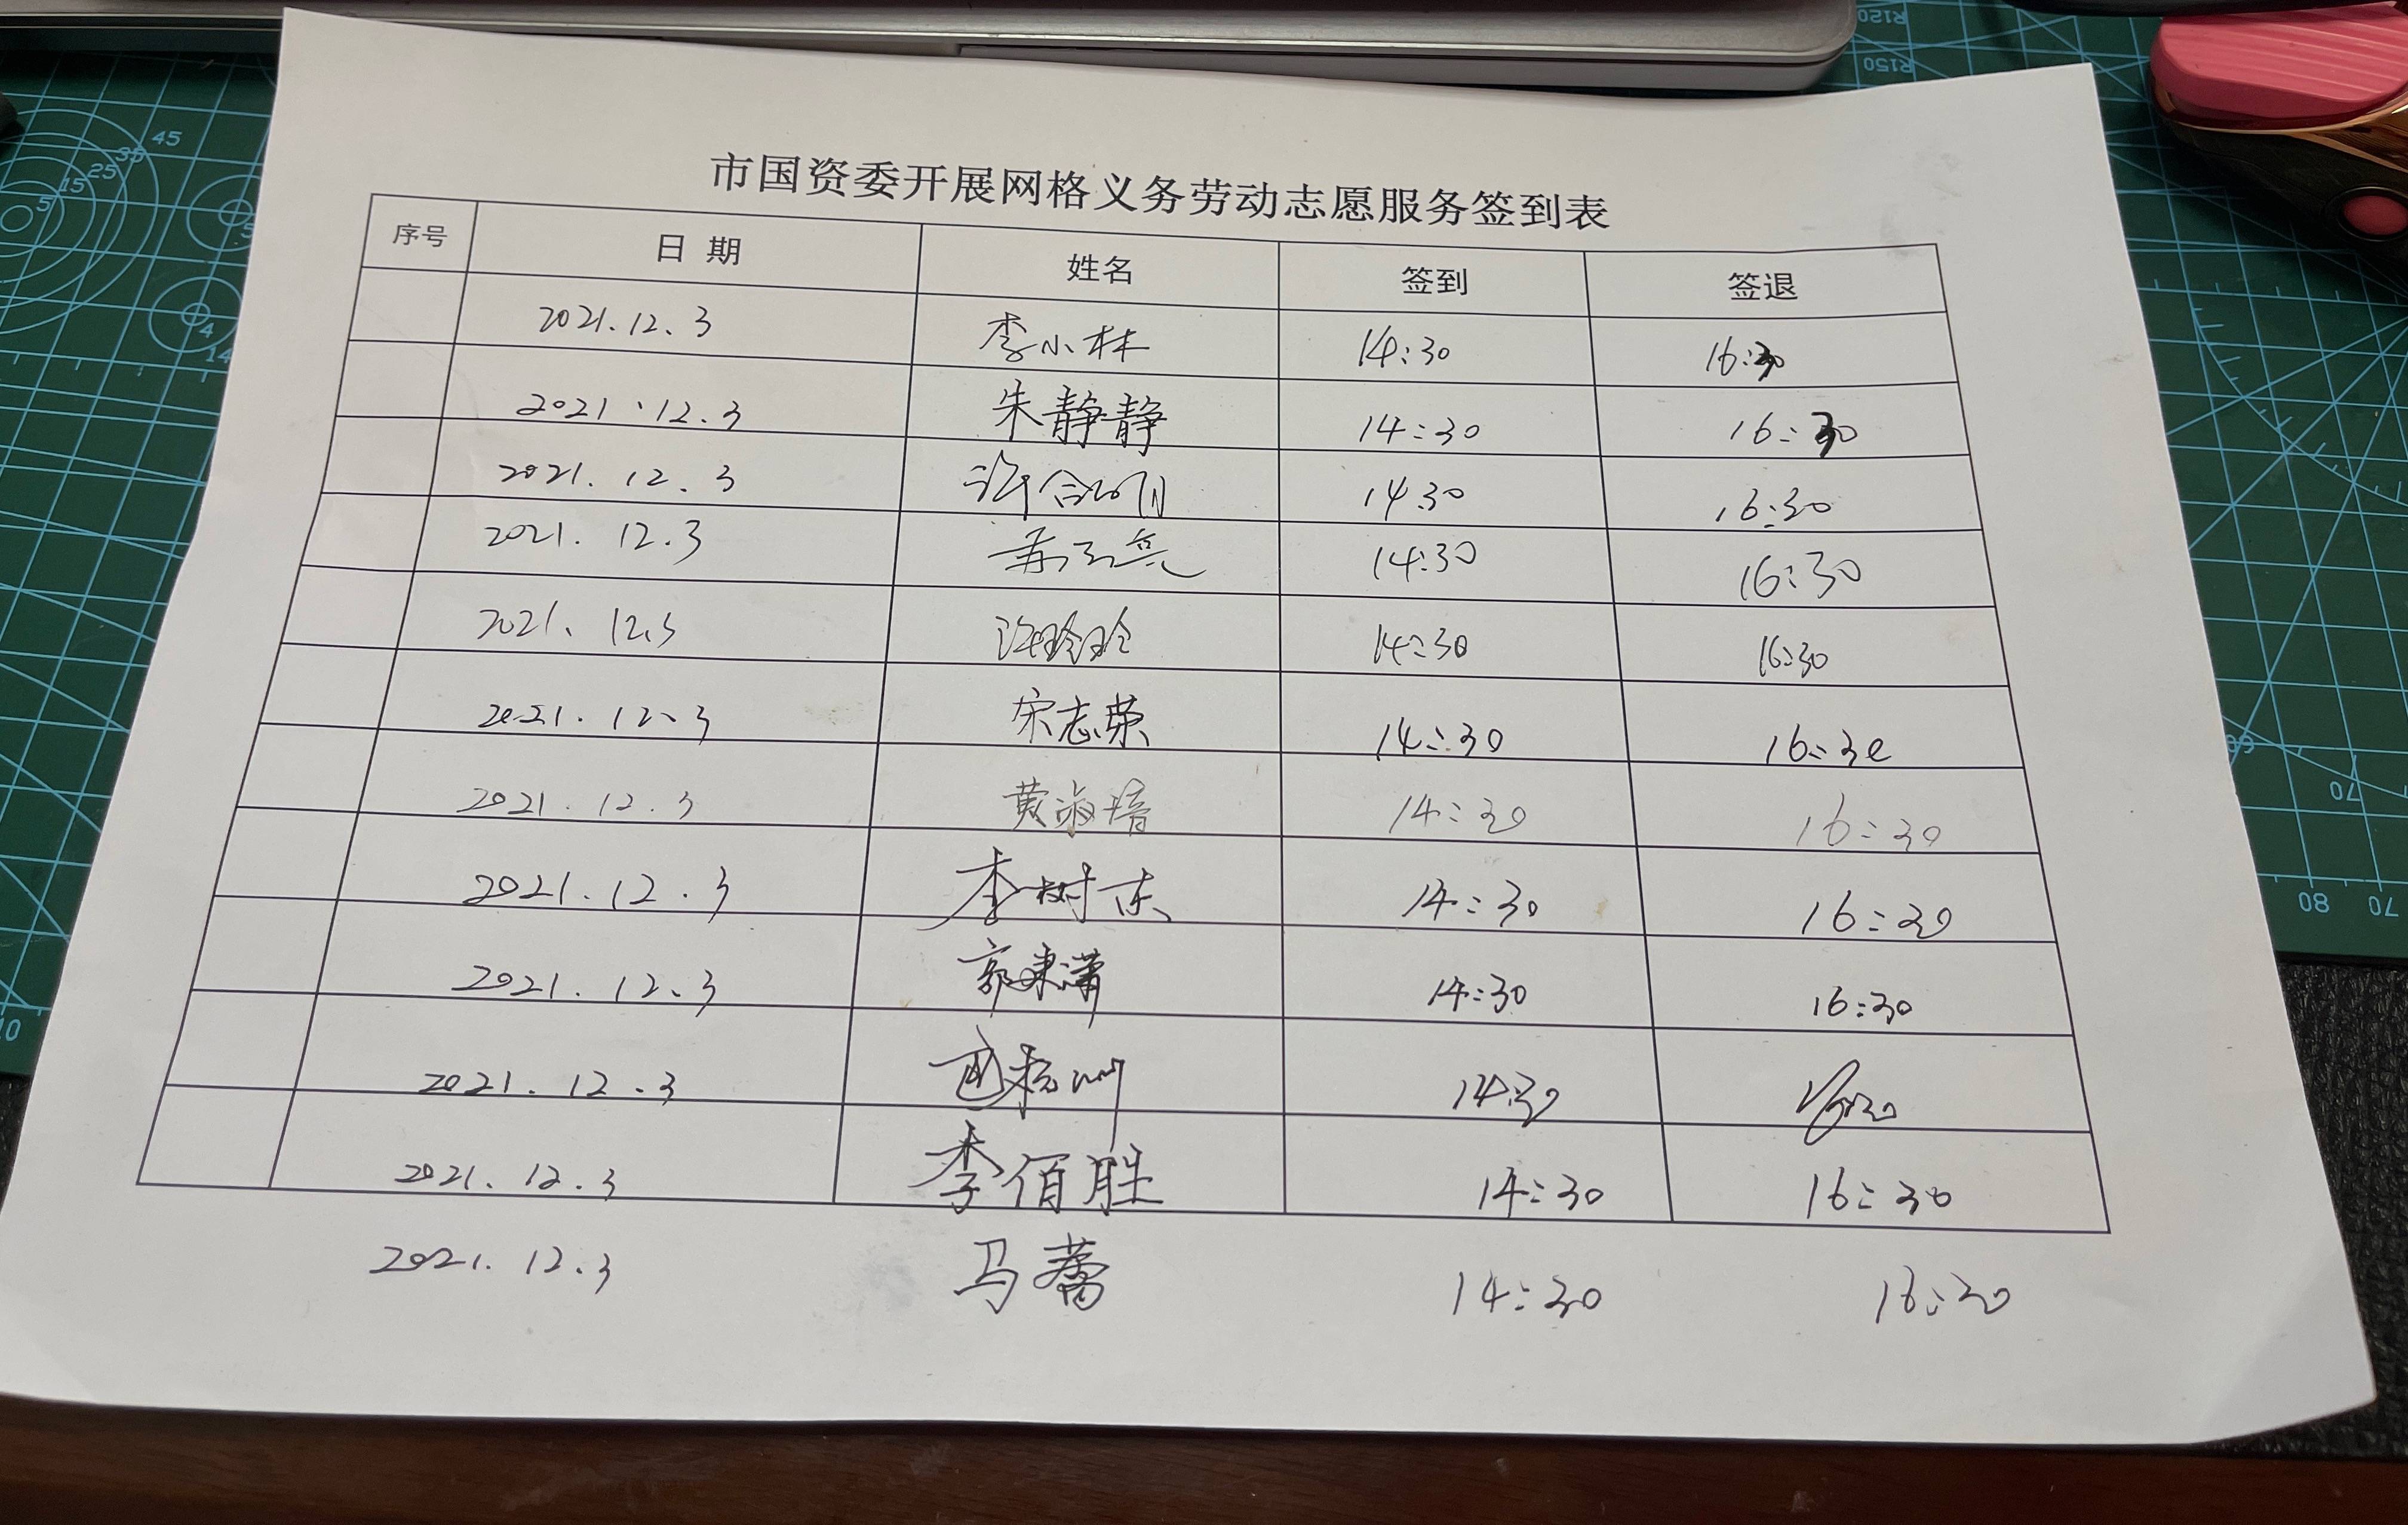 市国资委开展网格义务劳动志愿服务签到表
序号 日期 姓名 签到 签退
2021.12.3 李小林 14:30 16:30
2021.12.3 朱静静 14:30 16:30
2021.12.3 14:30 16:30
2021.12.3 14:30 16:30
2021.12.3 许玲玲 14:30 16:30
2021.12.3 宋志荣 14:30 16:30
2021.12.3 黄淑培 14:30 16:30
2021.12.3 李树东 14:30 16:30
2021.12.3 14:30 16:30
2021.12.3 14:30
2021.12.3 李佰胜 14:30 16:30
2021.12.3 马蕾 14:30 16:30